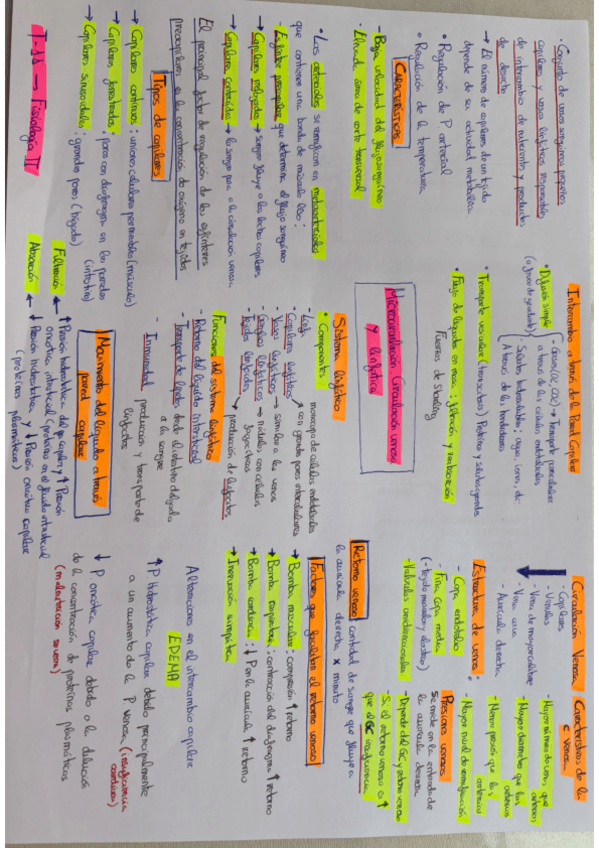 T-22 → Fisiología II
Microcirculación Circulación venosa
y linfática
• Conjunto de vasos sanguíneos pequeños
capilares y vasos linfáticos responsables
de intercambio de nutrientes y productos
de desecho
→ El número de capilares de un tejido
depende de su actividad metabólica
• Regulación de P arterial
• Regulación de la temperatura
Características
- Baja velocidad del flujo sanguíneo
- Elevada área de corte transversal
• Las arteriolas se ramifican en metaarteriolas
que contienen una banda de músculo liso:
- Esfínter precapilar que determina el flujo sanguíneo
→ Capilares relajados → sangre fluye a los lechos capilares
→ Capilares contraídos → la sangre pasa a la circulación venosa
El principal factor de regulación de los esfínteres
precapilares es la concentración de oxígeno en tejidos
Tipos de capilares
→ Capilares continuos: uniones celulares permeables (músculo)
→ Capilares fenestrados: poros con diafragma en las paredes
(intestino)
→ Capilares sinusoidales: grandes poros (hígado)
Intercambio a través de la Pared Capilar
• Difusión simple
(a favor de gradiente)
- Gases (O2, CO2) → transporte
a través de las células endoteliales
- Solutos hidrosolubles: agua, iones, etc
A través de las hendiduras
• Transporte vesicular (transcitosis) Proteínas y solutos grandes
• Flujo de líquidos en masa: filtración y reabsorción
Fuerzas de Starling
Sistema linfático
• Componentes
- Linfa
- Capilares linfáticos → monocapa de células endoteliales
con grandes poros intercelulares
- Vasos linfáticos → similar a las venas
- Ganglios linfáticos → nódulos con células
fagocíticas
- Tejidos linfoides → producción de linfocitos
Funciones del sistema linfático
- Retorno del líquido intersticial
- Transporte de lípidos desde el intestino delgado
a la sangre
- Inmunidad producción y transporte de
linfocitos
Movimiento del líquido a través
pared capilar
Filtración ← ↑ Presión hidrostática del capilar y ↑ Presión
oncótica intersticial (proteínas en el fluido intersticial)
Absorción ← ↓ Presión hidrostática y ↓ Presión oncótica capilar
(proteínas plasmáticas)
Circulación Venosa
- Capilares
- Vénulas
- Vena de mayor calibre
- Vena cava
- Aurícula derecha
Estructura de venas:
- Capa endotelio
- Fina capa media
(↑ tejido muscular y elástico)
- Válvulas unidireccionales
Características de la
C venosa
- Mayor número de venas que
arterias
- Mayor diámetro que las
arterias
- Menor presión que las
arterias
- Mayor nivel de ramificación
Presiones venosas
Se mide en la entrada de
la aurícula derecha
- Depende del GC y retorno venoso
- Si el retorno venoso es ↑
que el GC insuficiencia
Retorno venoso: cantidad de sangre que fluye a
la aurícula derecha x minuto
Factores que facilitan el retorno venoso
→ Bomba muscular: compresión ↑ retorno
→ Bomba respiratoria: contracción del diafragma ↑ retorno
→ Bomba cardiaca: ↓ P en la aurícula ↑ retorno
→ Inervación simpática
Alteraciones en el intercambio capilar
EDEMA
↑ P Hidrostática capilar debido principalmente
a un aumento de la P venosa (insuficiencia
cardiaca)
↓ P oncótica capilar debido a la dilución
de la concentración de proteínas plasmáticas
(malnutrición severa)